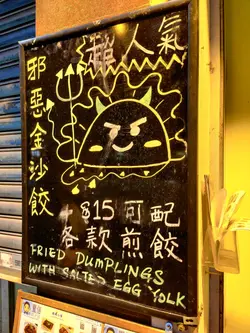 懶人氣
邪惡金沙餃
+$15可配
各款煎餃
FRIED DUMPLINGS
WITH SALTED EGG YOLK